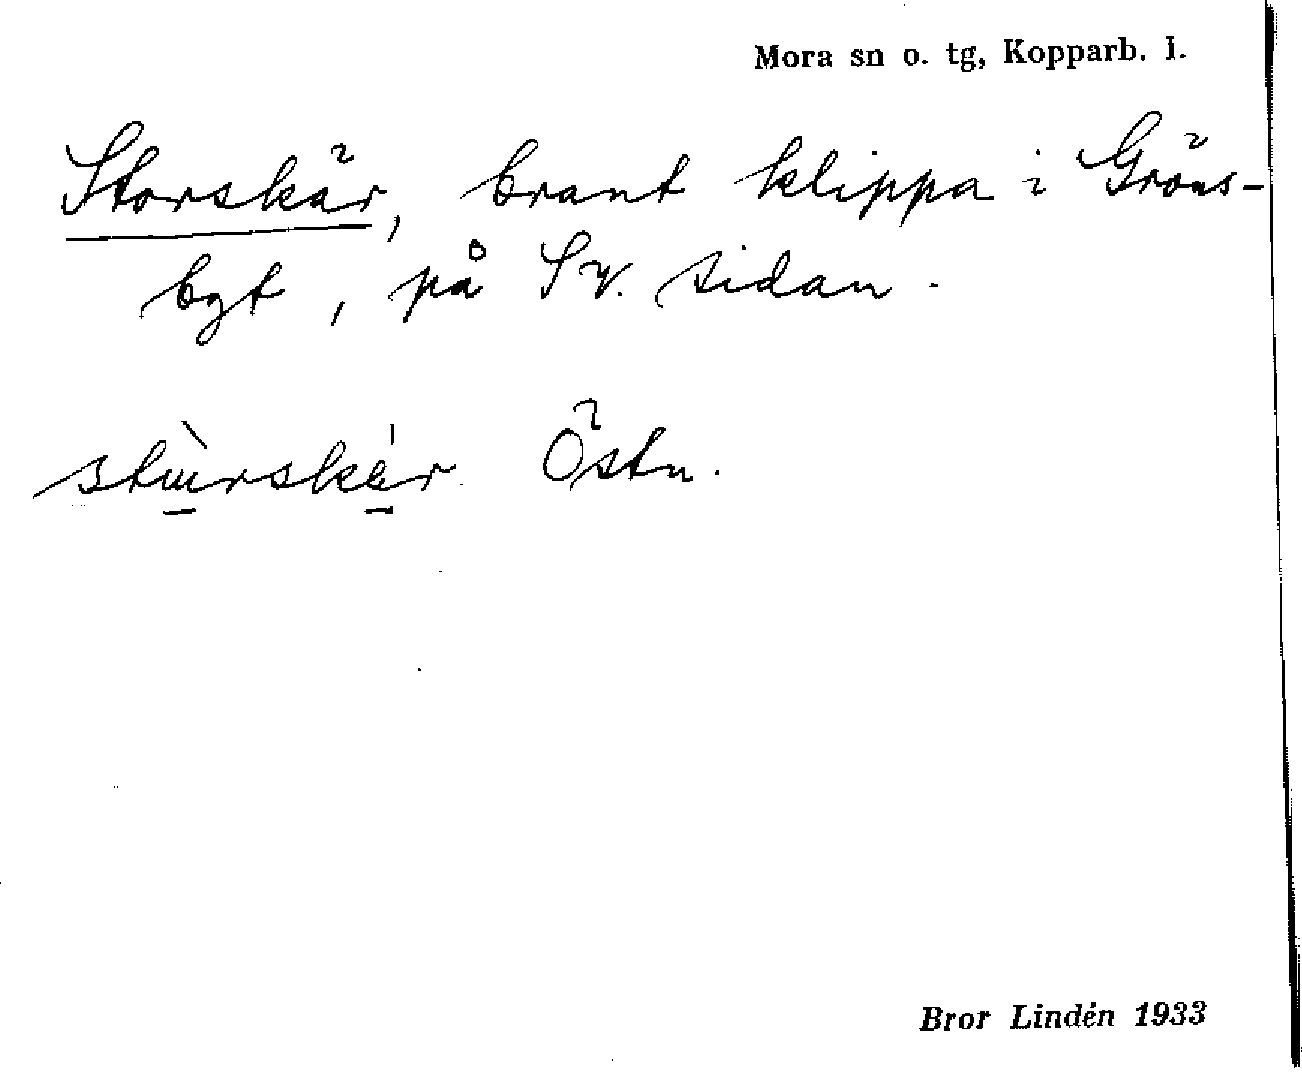 Mora sn o. tg, Kopparb. l.
Storskär, brant klippa i Gröns-
bgt, på Sv. sidan.
stùrskér Östn.
Bror Lindén 1933